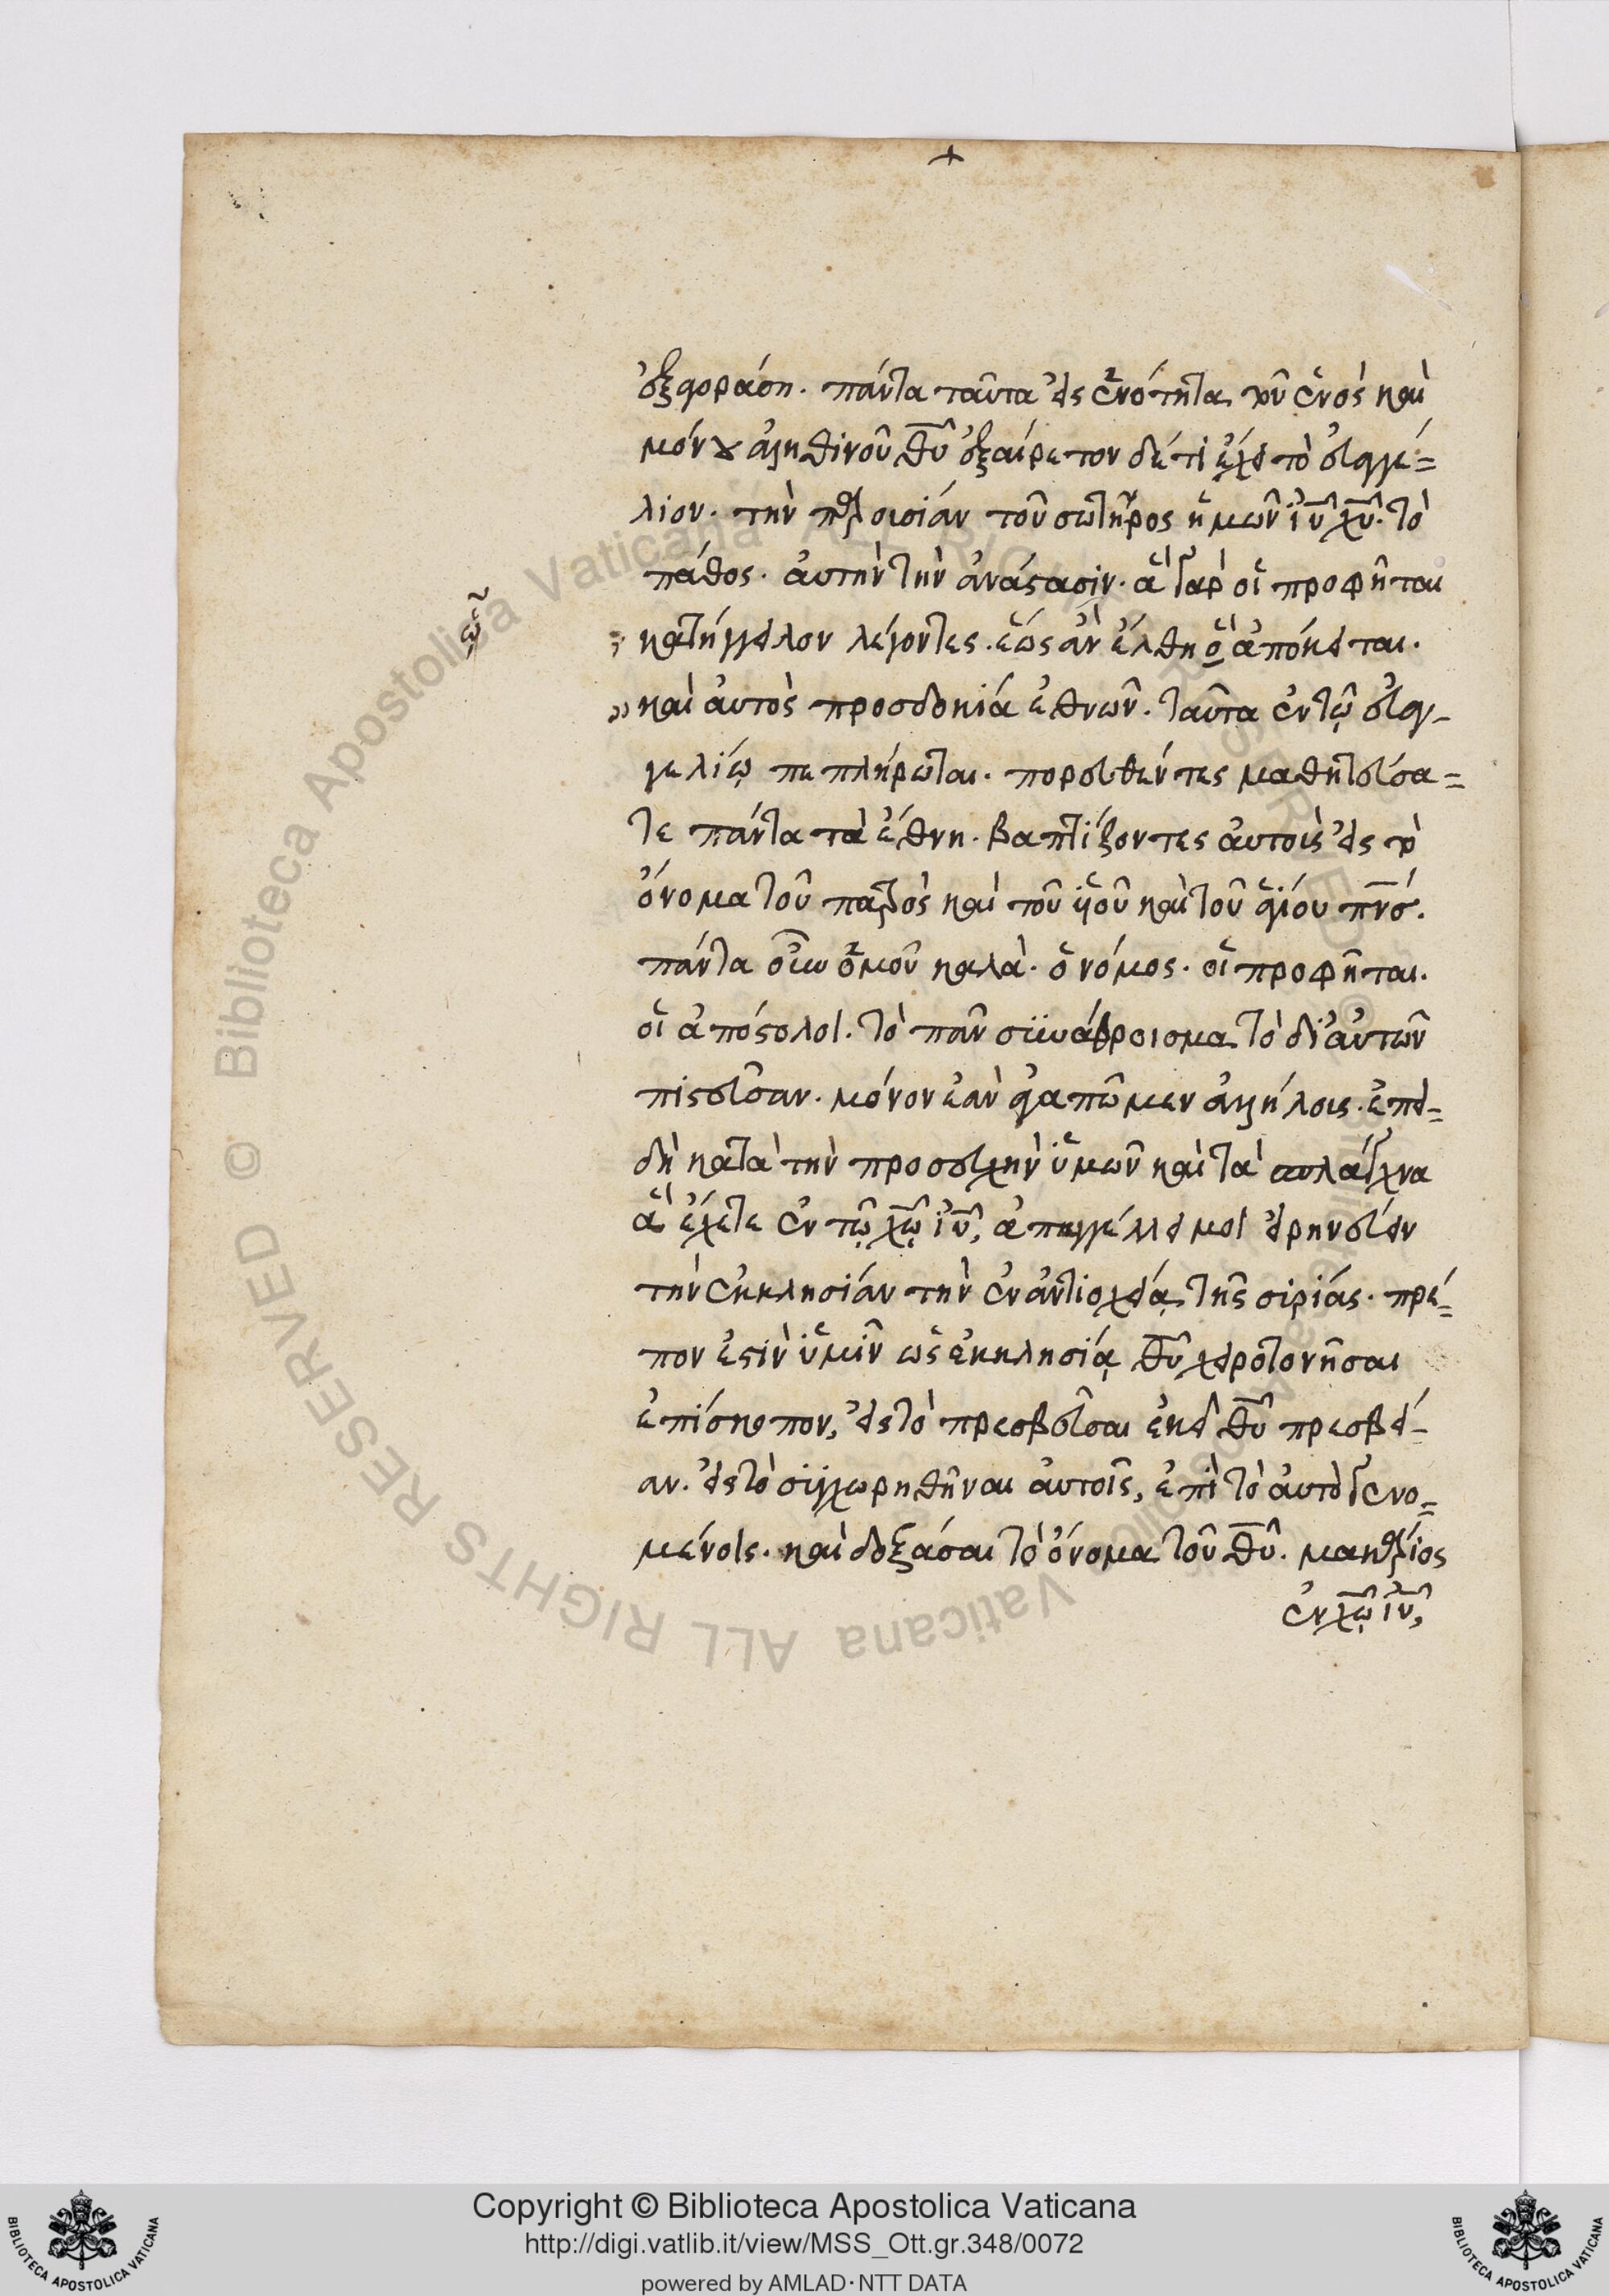 ἐξηγοράση. πάντα ταῦτα εἰς ἑνότητα τοῦ ἑνὸς καὶ
μόνου ἀληθινοῦ θ̅υ̅ ἐξαίρετον δέ τι ἔχει τὸ εὐαγγέ=
λιον. τὴν παρουσίαν τοῦ σωτῆρος ἡμῶν ἰ̅υ̅ χ̅υ̅. τὸ
πάθος. αὐτὴν τὴν ἀνάστασιν. ἃ γὰρ οἱ προφῆται
κατήγγειλον λέγοντες. ἕως ἂν ἔλθη ὃ ἀπόκειται.
καὶ αὐτὸς προσδοκία ἐθνῶν. ταῦτα ἐν τῷ εὐαγ-
γελίῳ πεπλήρωται. πορευθέντες μαθητεύσα=
τε πάντα τὰ ἔθνη. βαπτίζοντες αὐτοὺς εἰς τὸ
ὄνομα τοῦ πατρὸς καὶ τοῦ υἱοῦ καὶ τοῦ ἁγίου π̅ν̅σ̅.
πάντα οὖν ὁμοῦ καλὰ. ὁ νόμος. οἱ προφῆται.
οἱ ἀπόστολοι. τὸ πᾶν συνάθροισμα τὸ δι᾽ αὐτῶν
πιστεῦσαν. μόνον ἐὰν ἀγαπῶμεν ἀλλήλους. ἐπει=
δὴ κατὰ τὴν προσευχὴν ὑμῶν καὶ τὰ σπλάγχνα
ἃ ἔχετε ἐν τῷ χ̅ῷ̅ ἰ̅υ̅, ἀπηγγέλλει μοι εἰρηνεύειν
τὴν ἐκκλησίαν τὴν ἐν ἀντιοχείᾳ τῆς συρίας. πρέ=
πον ἐστὶν ὑμῖν ὡς ἐκκλησίᾳ θ̅υ̅ χειροτονῆσαι
ἐπίσκοπον, εἰς τὸ πρεσβεῦσαι ἐκεῖ θ̅υ̅ πρεσβεί-
αν. εἰς τὸ συγχωρηθῆναι αὐτοῖς, ἐπὶ τὸ αὐτὸ γενο=
μένοις. καὶ δοξάσαι τὸ ὄνομα τοῦ θ̅υ̅. μακάριος
ἐν χ̅ῷ̅ ἰ̅υ̅,
Copyright © Biblioteca Apostolica Vaticana
http://digi.vatlib.it/view/MSS_Ott.gr.348/0072
powered by AMLAD·NTT DATA
BIBLIOTECA APOSTOLICA VATICANA
BIBLIOTECA APOSTOLICA VATICANA